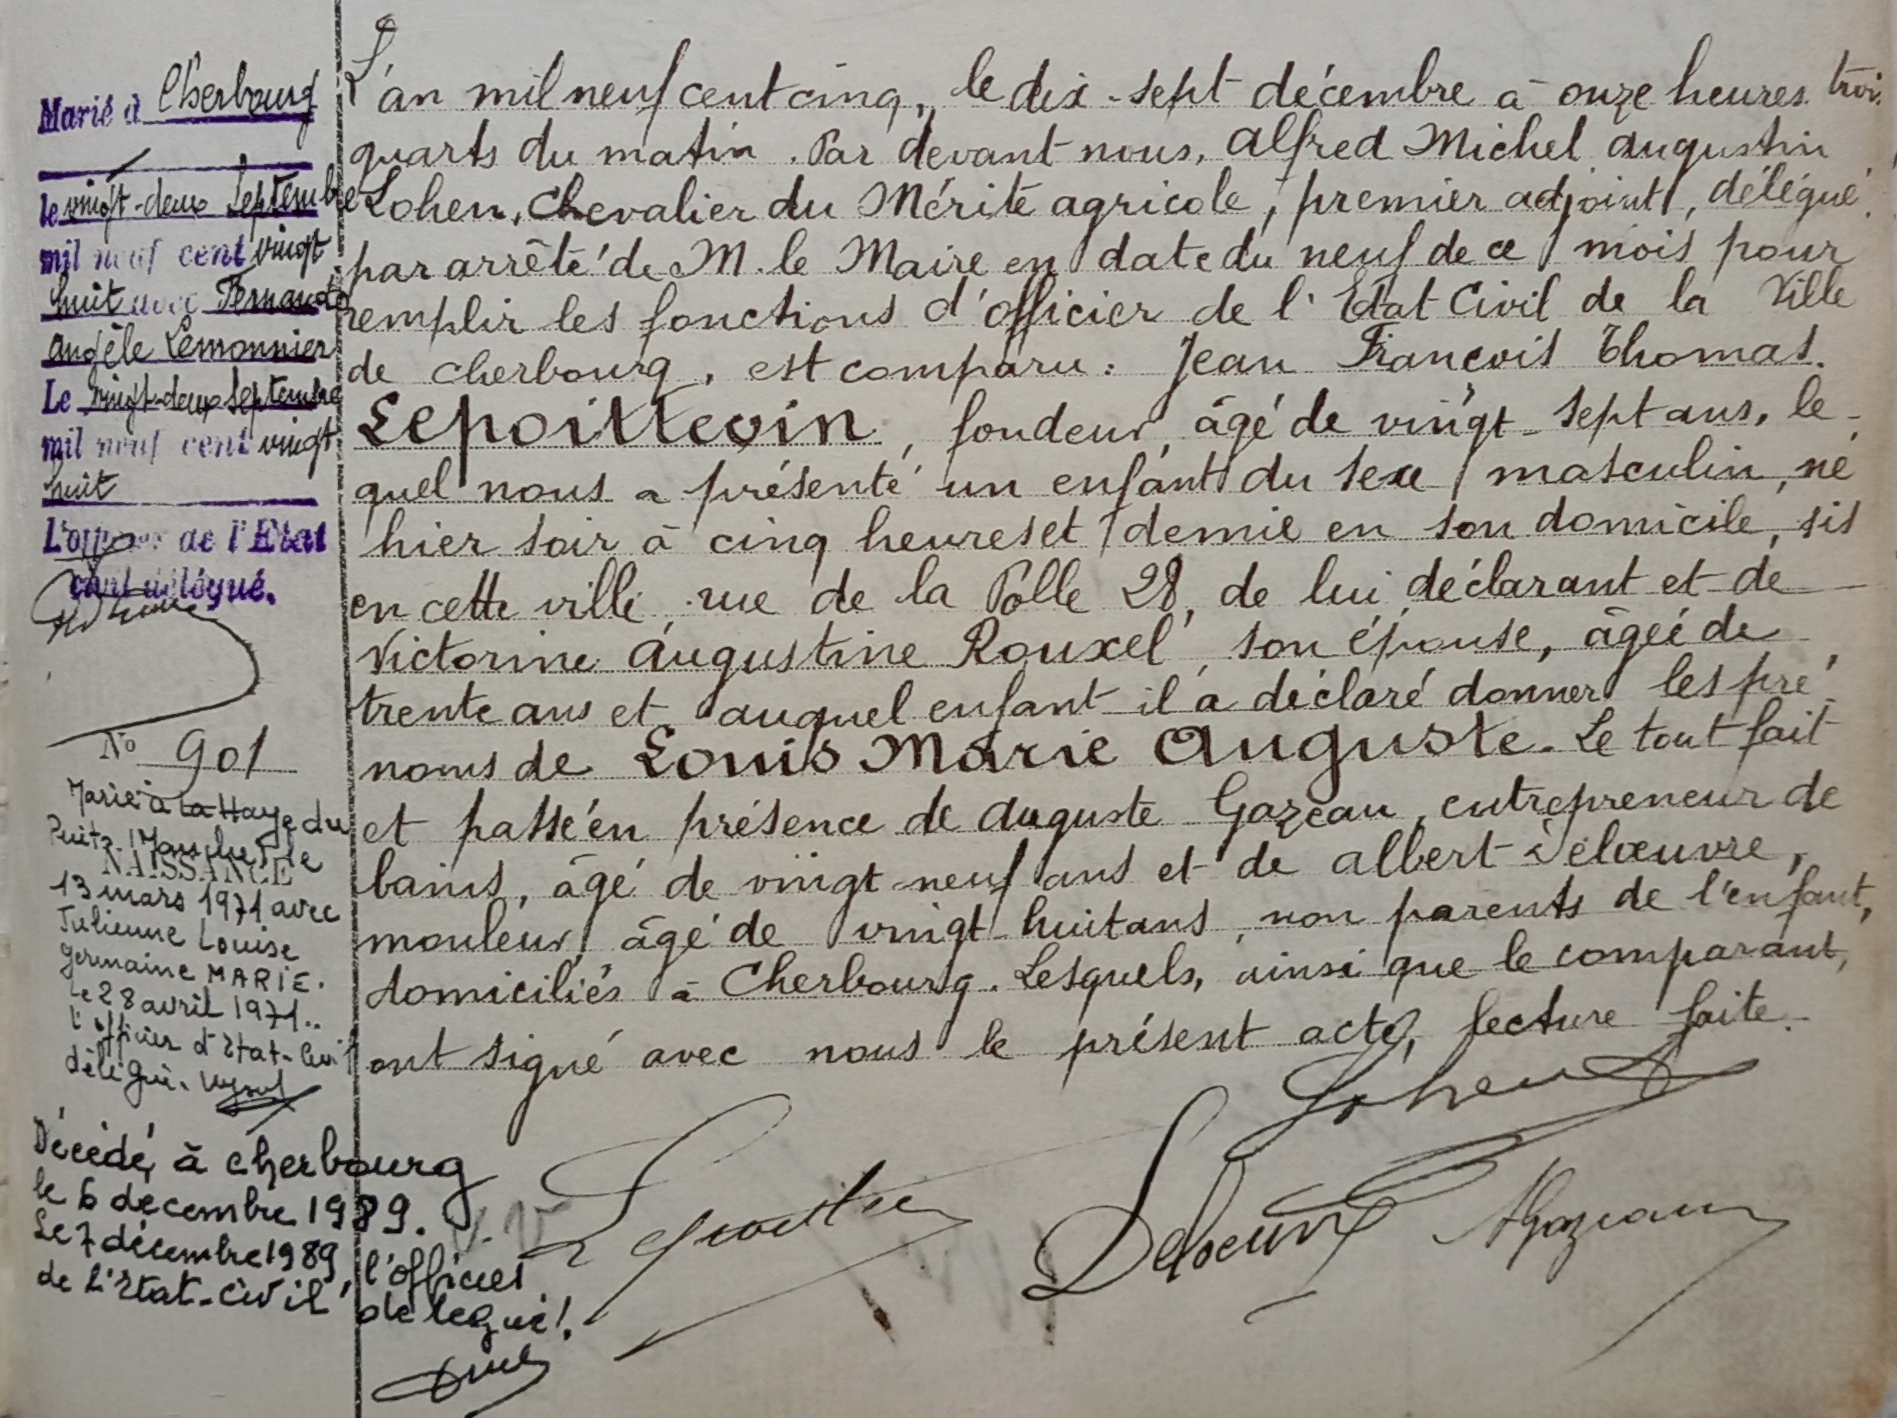 Marié à Cherbourg
le vingt-deux Septembre
mil neuf cent vingt
huit avec Fernande
Angèle Lemonnier
Le vingt-deux Septembre
mil neuf cent vingt
huit
L'officier de l'Etat
civil délégué.
No 901
NAISSANCE
Marié à La Haye du
Puits (Manche) le
13 mars 1971 avec
Julienne Louise
Germaine MARIE.
Le 28 avril 1971..
l'officier d'Etat-Civil
délégué.
Décédé à Cherbourg
le 6 décembre 1989.
Le 7 décembre 1989, l'officier
de l'Etat-Civil délégué!.
L'an mil neuf cent cinq, le dix-sept décembre à onze heures trois
quarts du matin. Par devant nous, Alfred Michel Augustin
Lohen, Chevalier du Mérite agricole, premier adjoint, délégué
par arrêté de M. le Maire en date du neuf de ce mois pour
remplir les fonctions d'officier de l'Etat Civil de la Ville
de Cherbourg, est comparu: Jean François Thomas
Lepoittevin, fondeur, âgé de vingt-sept ans, le-
quel nous a présenté un enfant du sexe masculin, né
hier soir à cinq heures et demie en son domicile, sis
en cette ville, rue de la Polle 28, de lui déclarant et de
Victorine Augustine Rouxel, son épouse, âgée de
trente ans et auquel enfant il a déclaré donner les pré-
noms de Louis Marie Auguste. Le tout fait
et passé en présence de Auguste Gazeau, entrepreneur de
bains, âgé de vingt-neuf ans et de Albert Delœuvre,
mouleur, âgé de vingt-huit ans, non parents de l'enfant,
domiciliés à Cherbourg. Lesquels, ainsi que le comparant,
ont signé avec nous le présent acte, lecture faite.
Lohen
Lepoittevin
Delœuvre
AGazeau